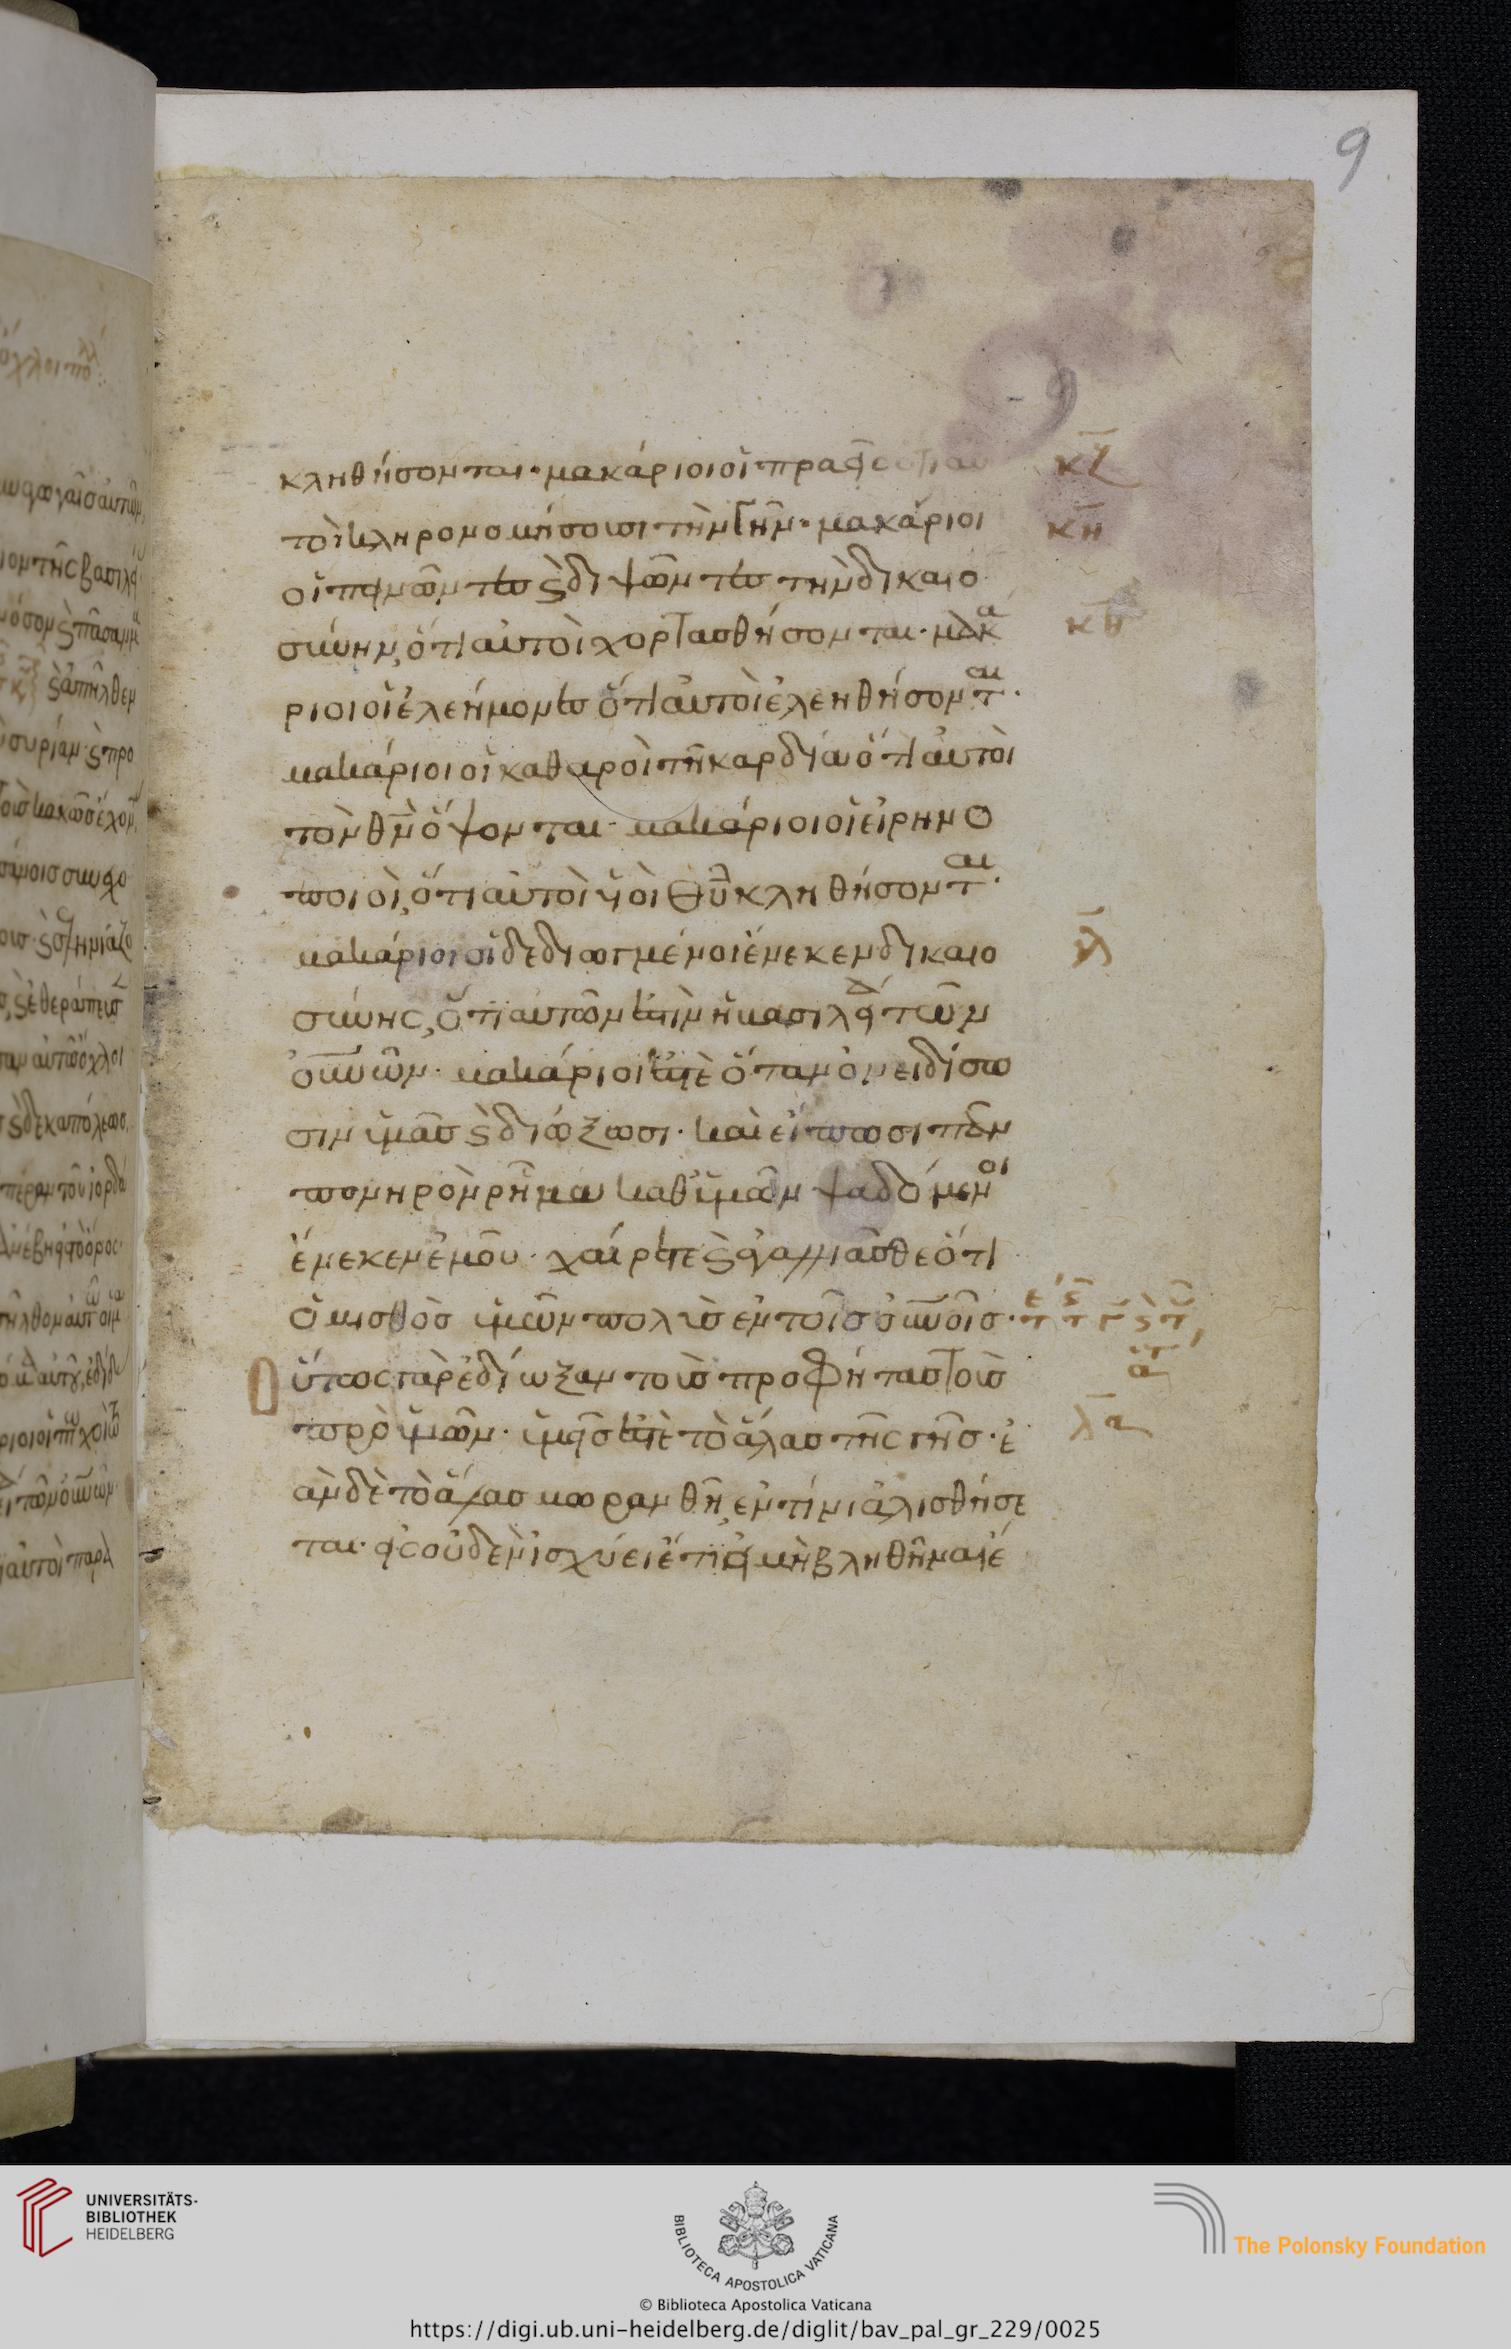 9
9
κληθήσονται· μακάριοι οἱ πραεῖς ὅτι αυ
τοὶ κληρονομήσουσι τὴν γῆν· μακάριοι
οἱ πεινῶντες ϗ διψῶντες τὴν δικαιο
σύνην, ὅτι αὐτοὶ χορτασθήσονται· μακά
ριοι οἱ ἐλεήμονες ὅτι αὐτοὶ ἐλεηθήσονται·
μακάριοι οἱ καθαροὶ τῆ καρδία ὅτι αὐτοὶ
τὸν θν ὄψονται· μακάριοι οἱ εἰρηνο
ποιοὶ, ὅτι αὐτοὶ υἱοὶ θυ κληθήσονται·
μακάριοι οἱ δεδιωγμένοι ἕνεκεν δικαιο
σύνης, ὅτι αυτῶν ἐστὶν ἡ βασιλεία τῶν
οὐνῶν· μακάριοι ἐστὲ ὅταν ὀνειδίσω
σιν ὑμᾶς ϗ διώξωσι· καὶ εἴπωσι πᾶν
πονηρὸν ρῆμα καθ' ὑμῶν ψευδόμενοι
ἕνεκεν ἐμοῦ· χαίρετε ϗ ἀγαλλιᾶσθε ὅτι
ὁ μισθὸς ὑμῶν πολὺς ἐν τοῖς οὐνοῖς·
οὕτως γὰρ ἐδίωξαν τοὺς προφήτας τοὺς
πρὸ ὑμῶν· ὑμεῖς ἐστὲ τὸ ἅλας τῆς γῆς· ἐ
ὰν δὲ τὸ ἅλας μωρανθῆ, ἐν τίνι ἁλισθήσε
ται· εἰς οὐδὲν ἰσχύει ἔτι εἰ μὴ βληθῆναι ἔ
κζ
κη
κθ
λ
λα
UNIVERSITÄTS-
BIBLIOTHEK
HEIDELBERG
BIBLIOTECA APOSTOLICA VATICANA
© Biblioteca Apostolica Vaticana
The Polonsky Foundation
https://digi.ub.uni-heidelberg.de/diglit/bav_pal_gr_229/0025